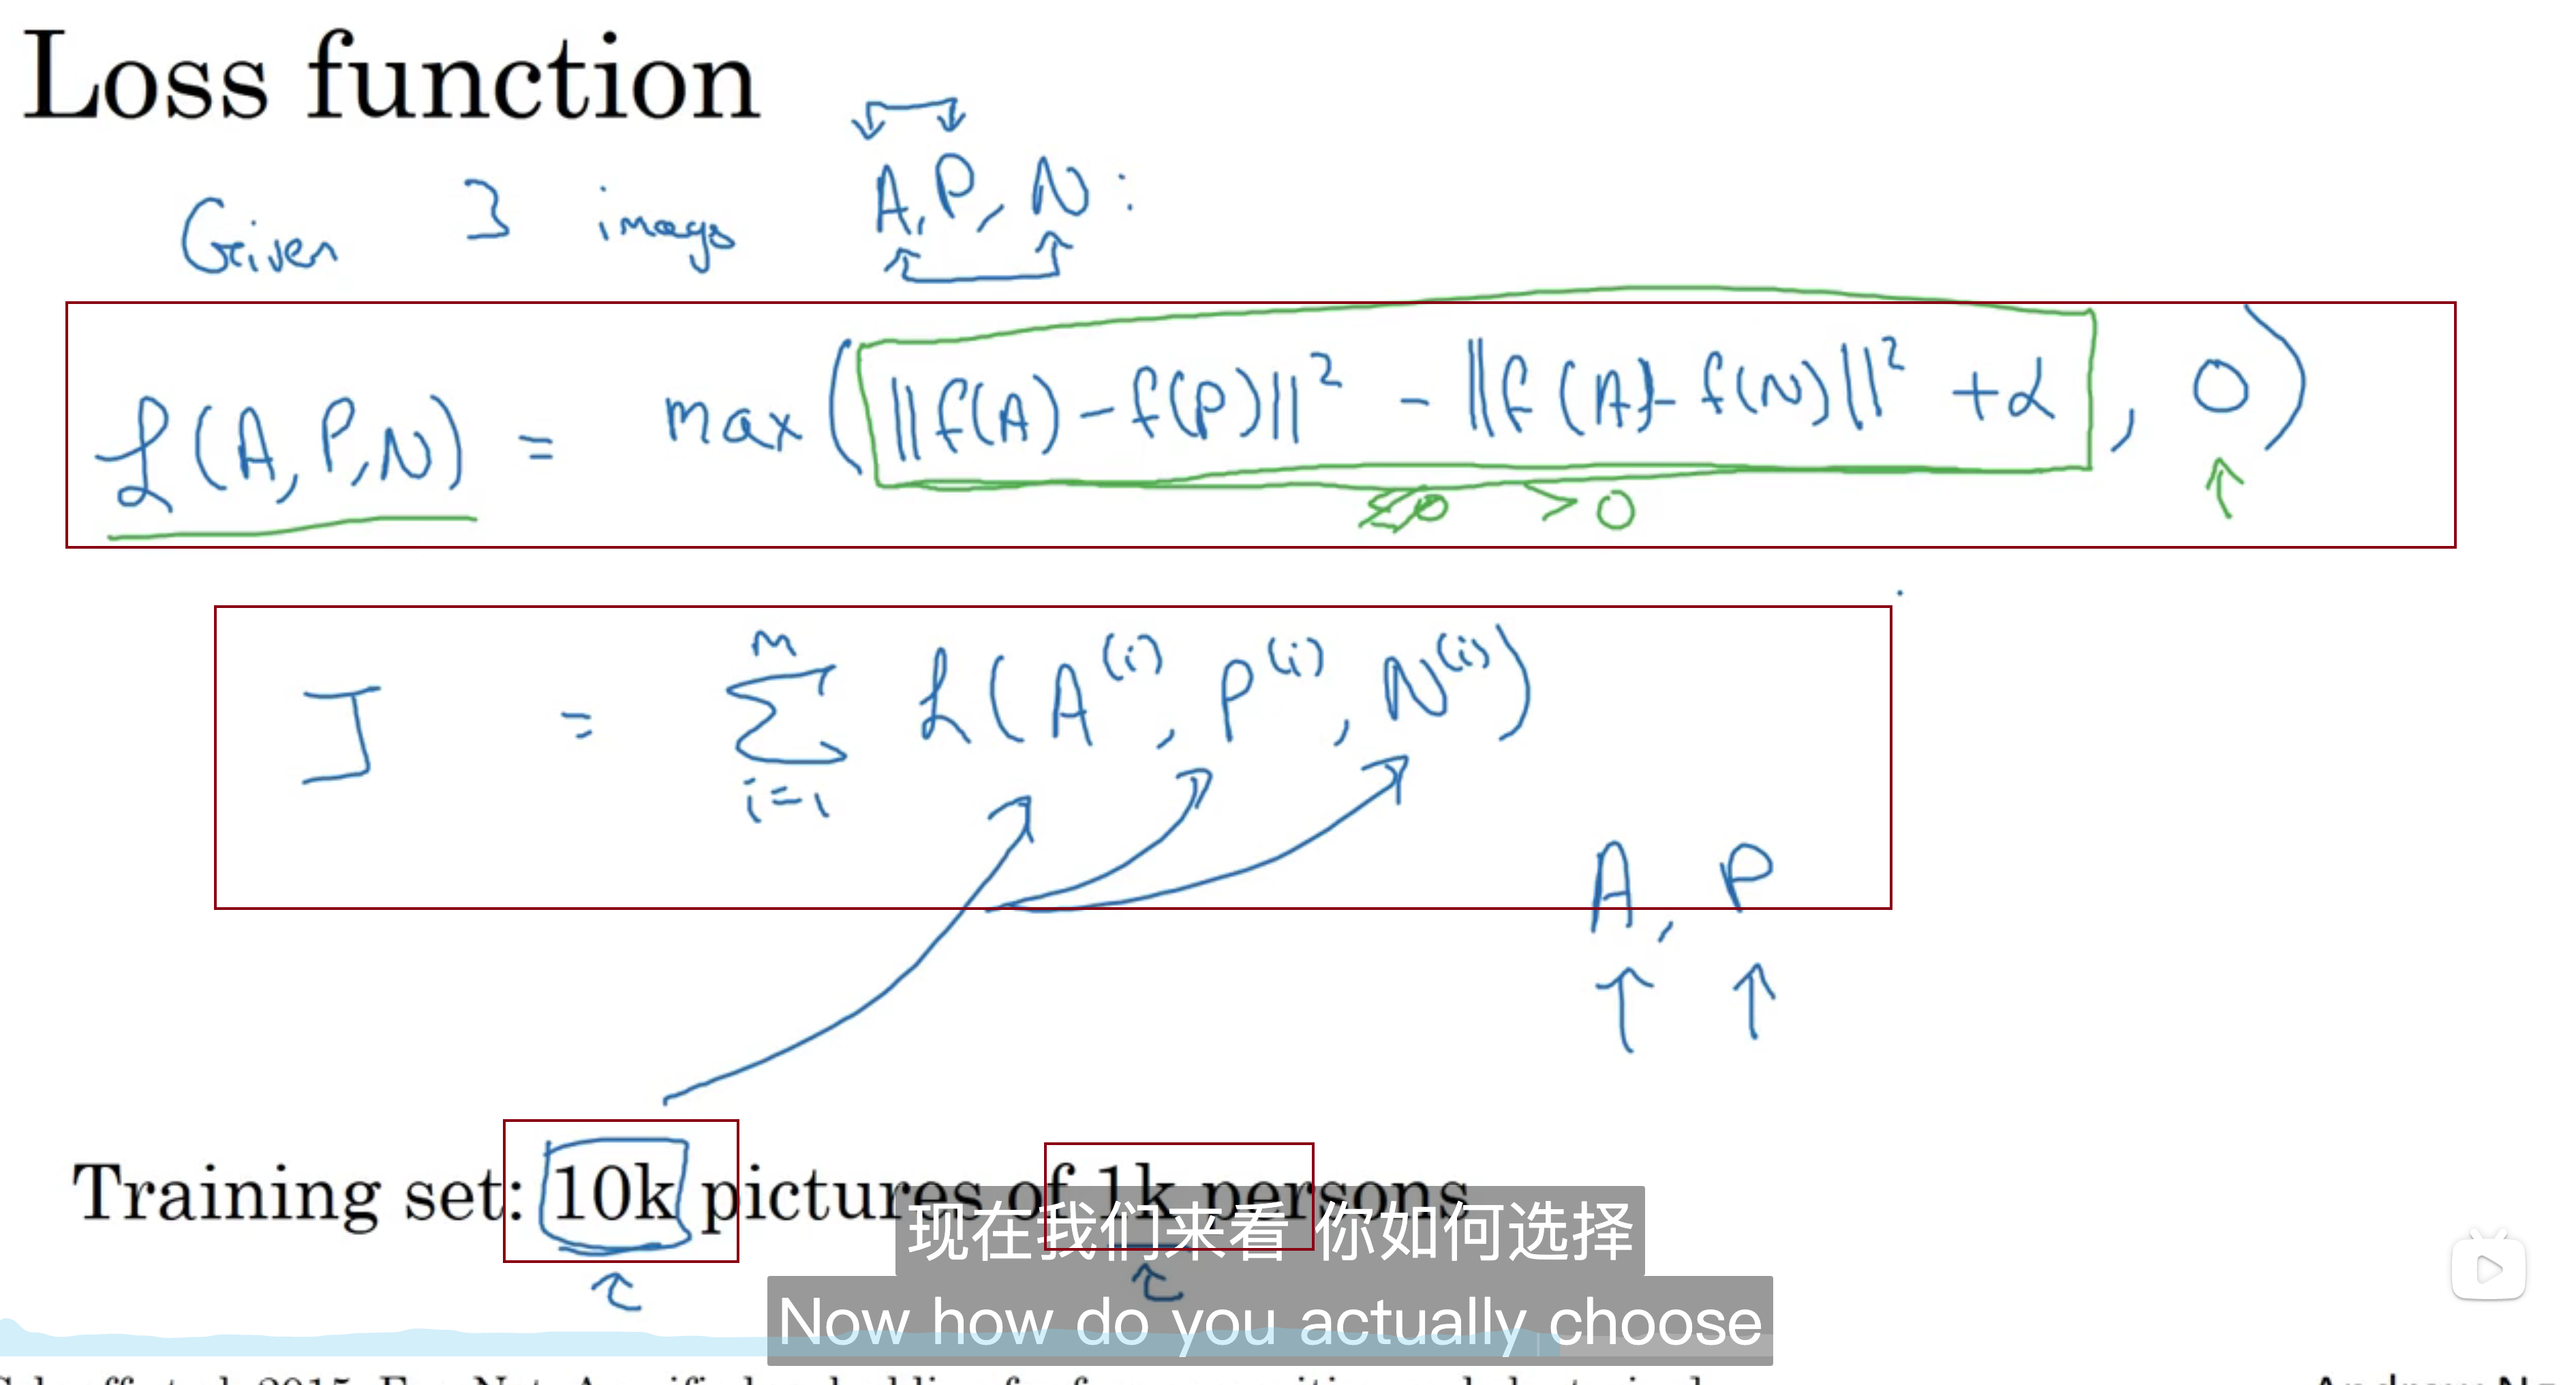 Loss function
Given 3 images A, P, N:
L(A,P,N) = max(||f(A) - f(P)||² - ||f(A) - f(N)||² + α, 0)
> 0
J = Σ L(A⁽ⁱ⁾, P⁽ⁱ⁾, N⁽ⁱ⁾)
m
i=1
A, P
Training set: 10k pictures of 1k persons
现在我们来看 你如何选择
Now how do you actually choose